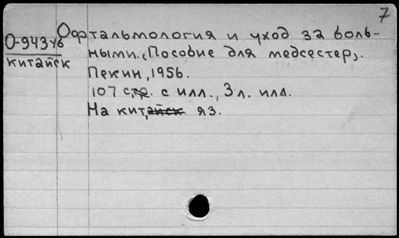 7
Офтальмология и уход за боль-
О-943уб
ными. (Пособие для медсестер).
китайск
Пекин, 1956.
107 стр. с илл., 3 л. илл.
На китайск яз.